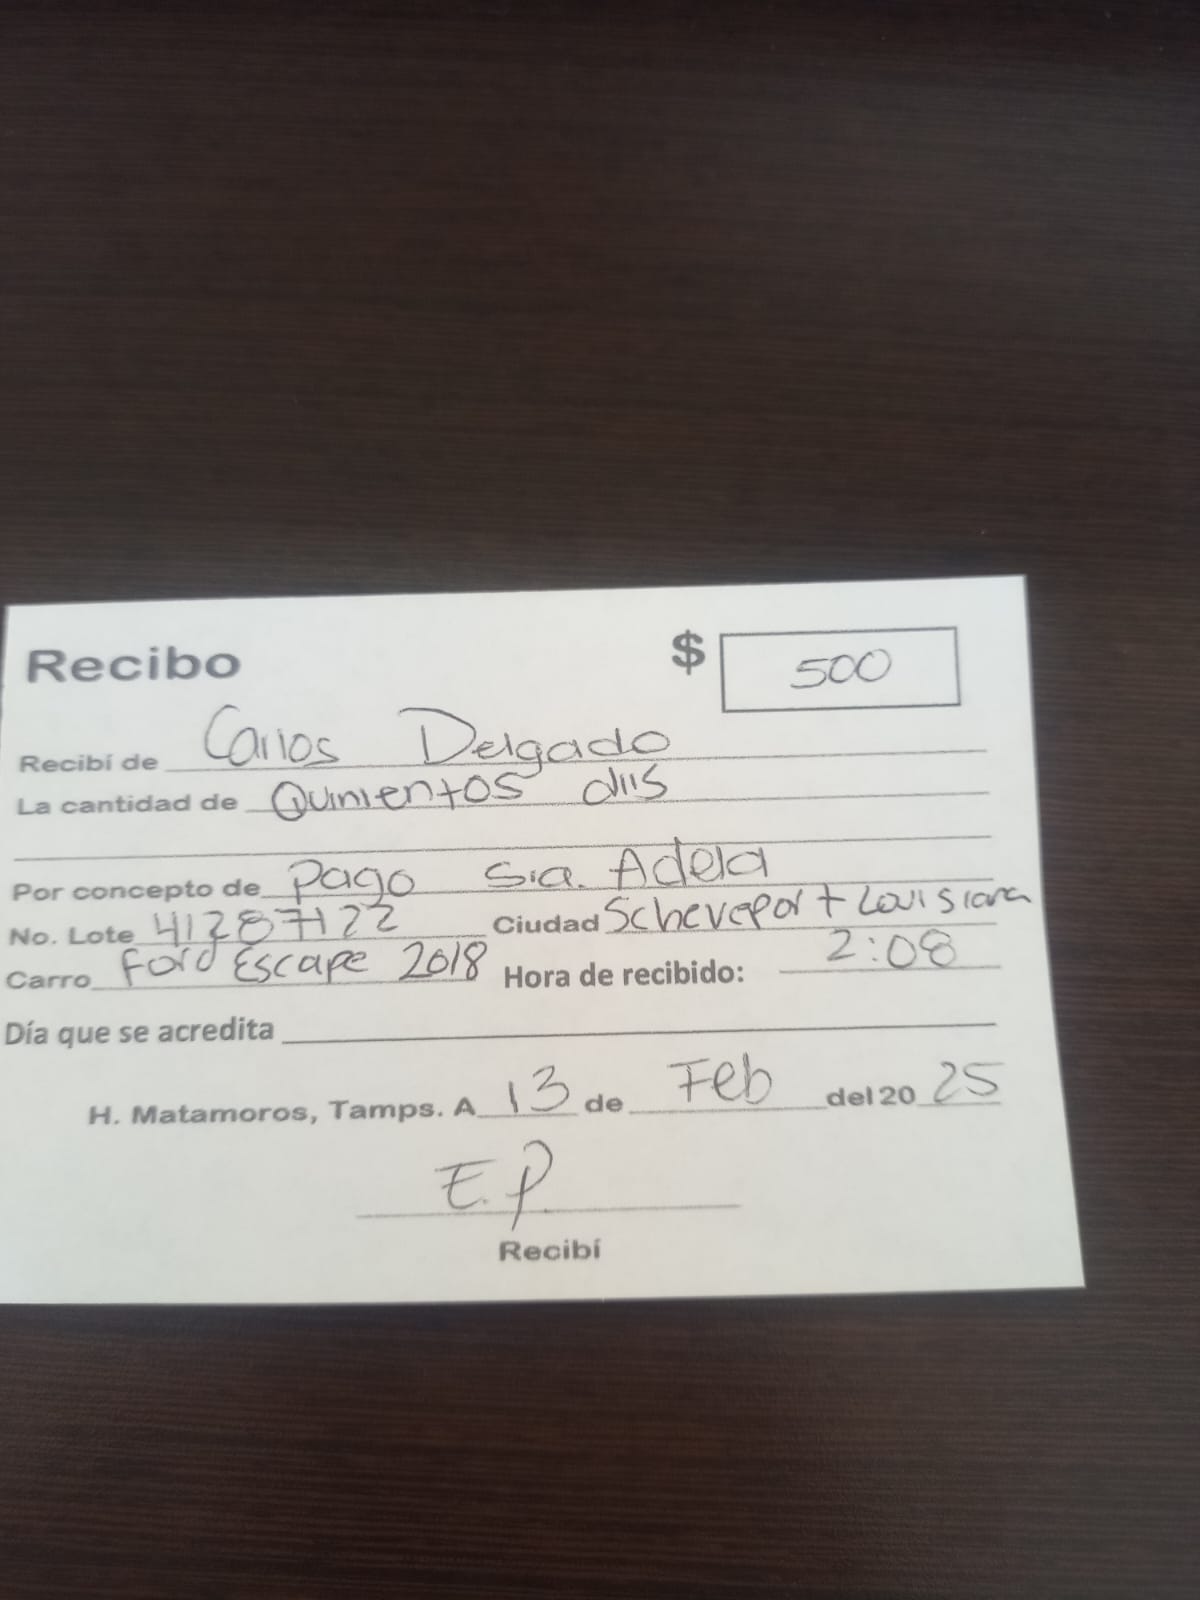 Recibo $ 500
Recibí de Carlos Delgado
La cantidad de Quinientos dlls
Por concepto de Pago Sra. Adela
No. Lote 41287122 Ciudad Scheveport Louisiana
Carro Ford Escape 2018 Hora de recibido: 2:08
Día que se acredita
H. Matamoros, Tamps. A 13 de Feb del 20 25
E.P.
Recibí